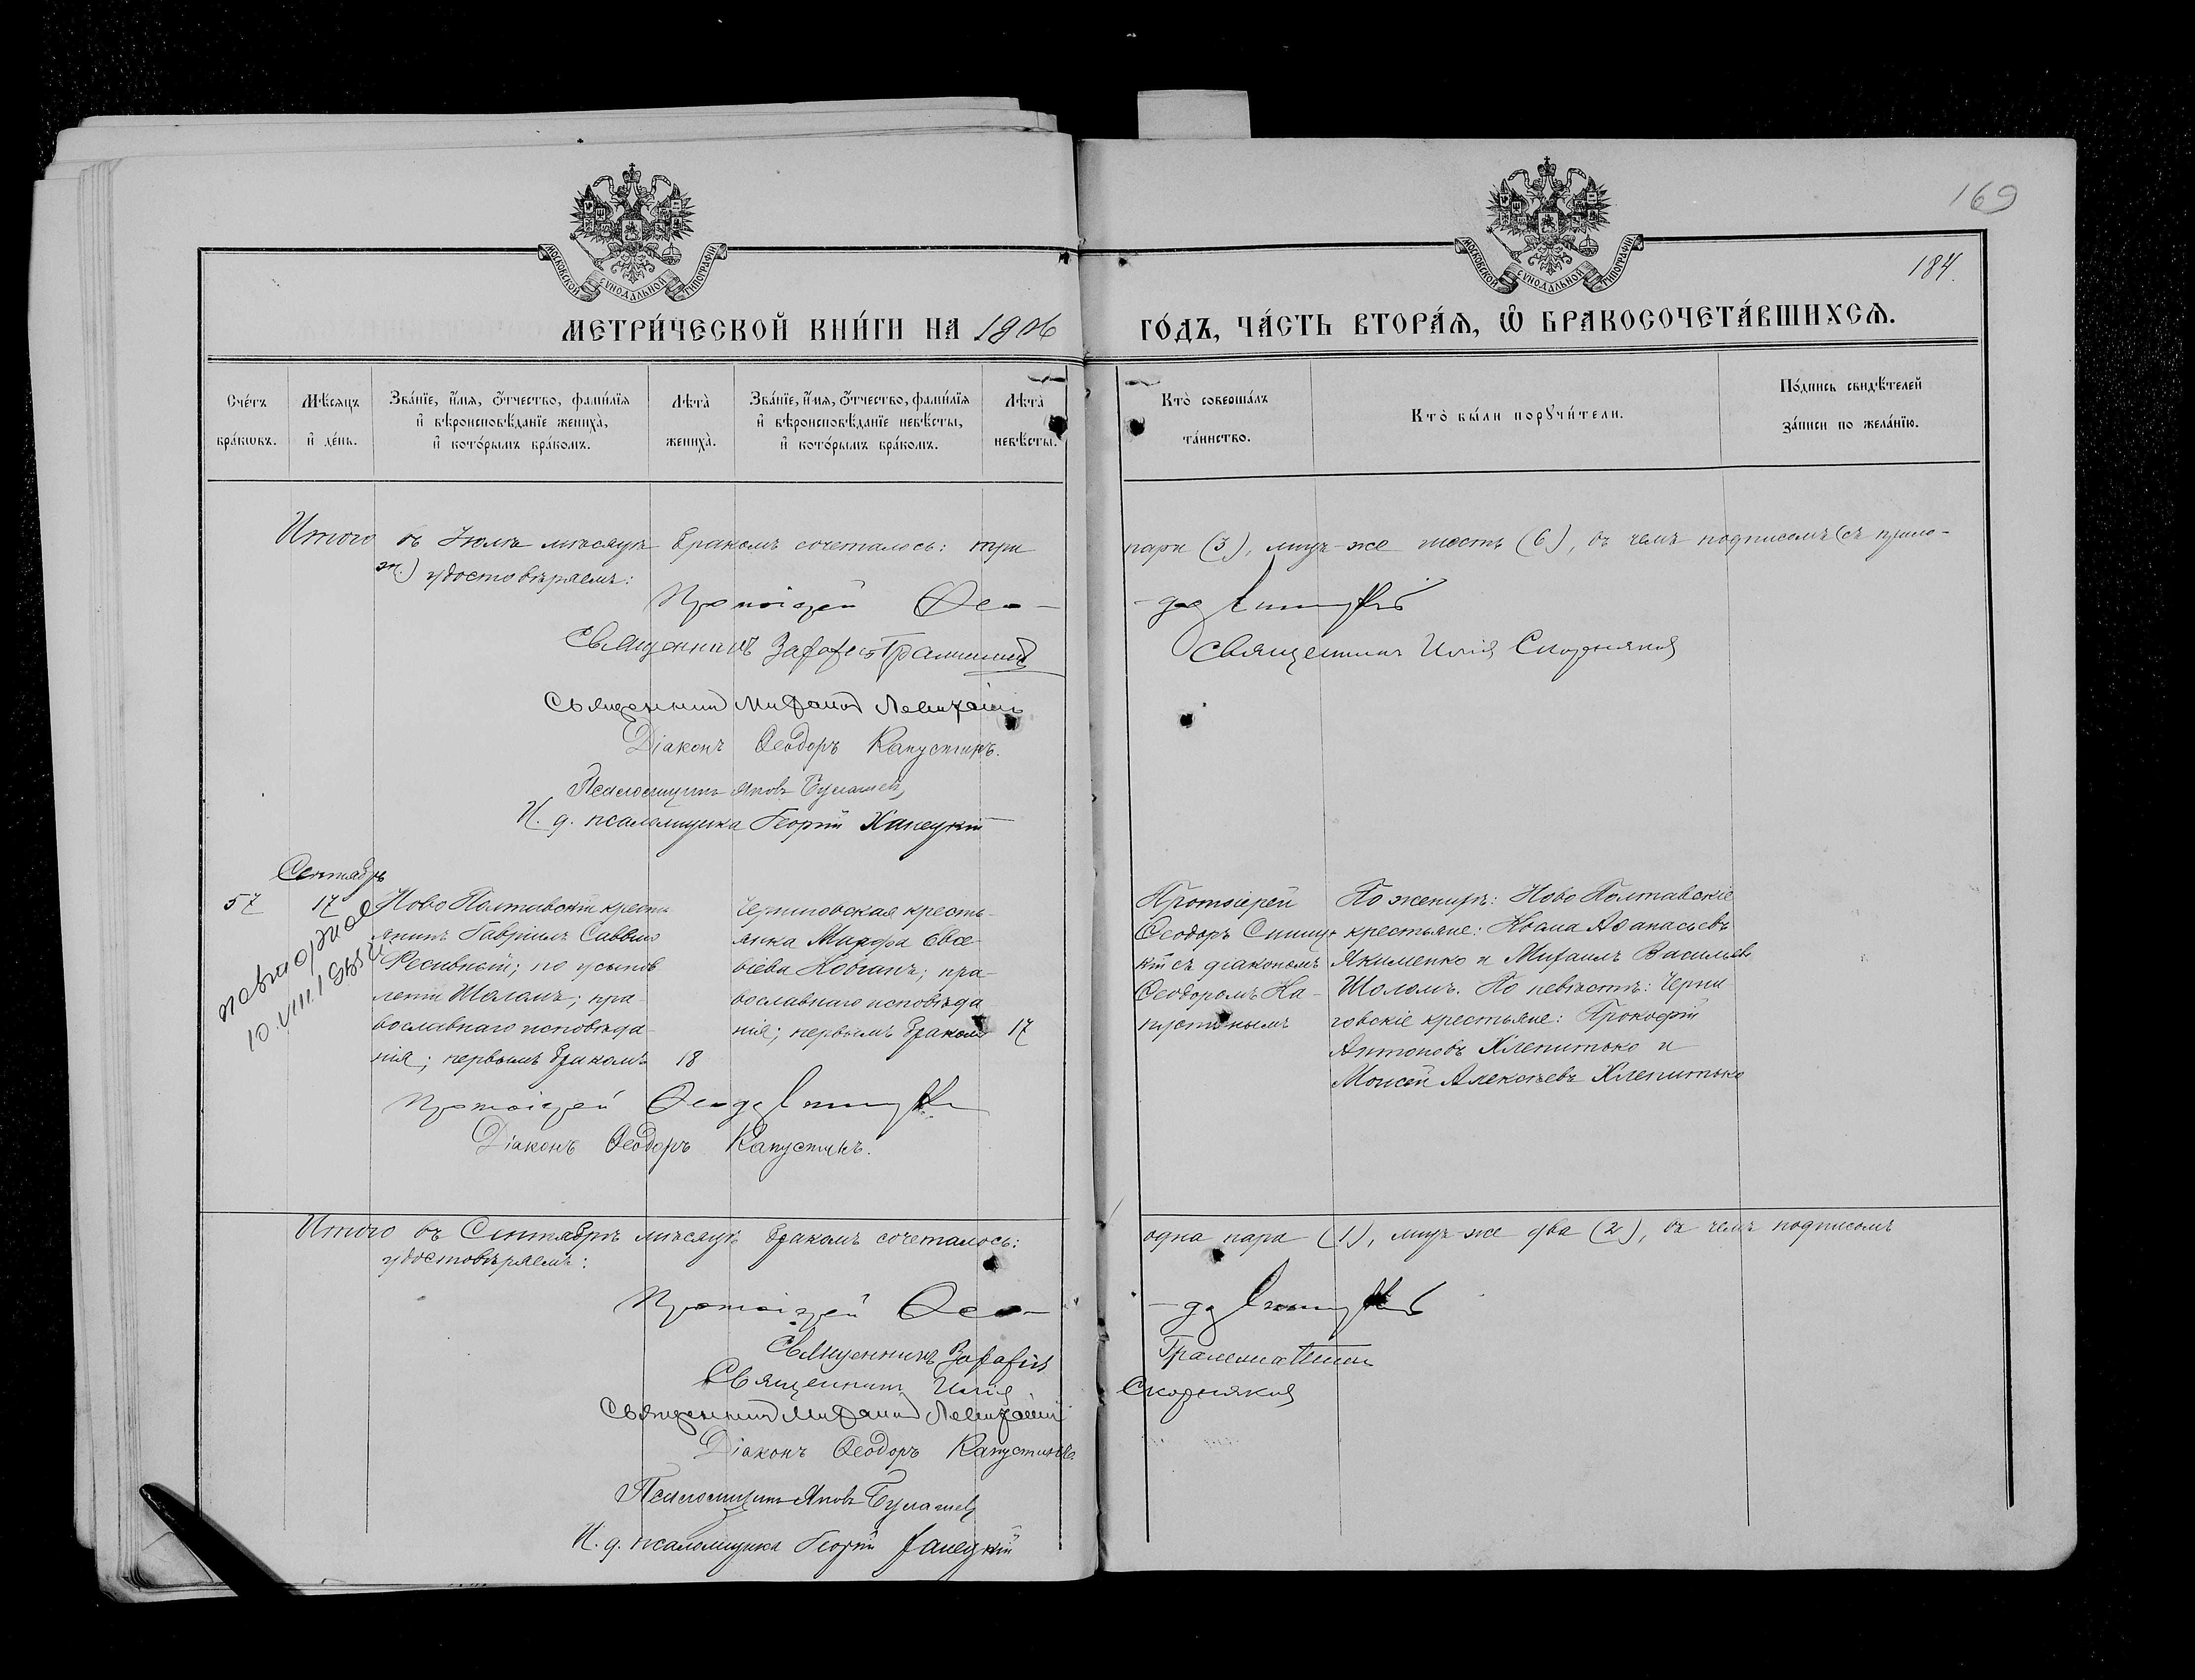 169
184.
МОСКОВСКОЙ СѴНОДАЛЬНОЙ ТИПОГРАФІИ
МОСКОВСКОЙ СѴНОДАЛЬНОЙ ТИПОГРАФІИ
МЕТРИ́ЧЕСКОЙ КНИ́ГИ НА 1906 ГО́ДЪ, ЧА́СТЬ ВТОРА́Ѧ, Ѡ҆ БРАКОСОЧЕТА́ВШИХСѦ.
Сче́тъ бра́кѡвъ.
Мѣ́сѧцъ и҆ де́нь.
Зва́нїе, и҆́мѧ, ѻ҆́тчество, фамі́лїѧ
и҆ вѣроисповѣ́данїе жениха̀,
и҆ кото́рымъ бра́комъ.
Лѣта̀ жениха̀.
Зва́нїе, и҆́мѧ, ѻ҆́тчество, фамі́лїѧ
и҆ вѣроисповѣ́данїе невѣ́сты,
и҆ кото́рымъ бра́комъ.
Лѣта̀ невѣ́сты.
Кто̀ соверша́лъ
та́инство.
Кто̀ бы́ли порꙋчи́тели.
По́дпись свидѣ́телей
за́писи по жела́нїю.
Итого въ Іюлѣ мѣсяцѣ бракомъ сочеталось: три пары (3), лицъ-же шесть (6), въ чемъ подписомъ (съ прило-
ж.) удостовѣряемъ:
Протоіерей Ѳео-
Священникъ
Священникъ Илія Скорняковъ
Священникъ Михаилъ
Діаконъ Ѳеодоръ Капустинъ.
Псаломщикъ Яковъ
И. д. псаломщика Георгій Ханецкій
Сентябрь
57
17
повторное
10.VIII.1955 г
Ново Полтавскій кресть
янинъ Гавріилъ Саввинъ
по усынов
леніи Шаломъ; пра-
вославнаго исповѣда-
нія; первымъ бракомъ
18
Черниговская кресть-
янка Марфа Евсе-
віева Ковганъ; пра-
вославнаго исповѣда
нія; первымъ бракомъ
17
Протоіерей
Ѳеодоръ Спишу-
кій съ діакономъ
Ѳеодоромъ Ка-
пустинымъ
По женихѣ: Ново Полтавскіе
крестьяне: Косма Аѳанасьевъ
Якименко и Михаилъ Васильевъ
Шоломъ. По невѣстѣ: Черни
говскіе крестьяне: Прокофій
Антоновъ Хлепитько и
Моисей Алексѣевъ Хлепитько
Протоіерей
Діаконъ Ѳеодоръ Капустинъ.
Итого въ Сентябрѣ мѣсяцѣ бракомъ сочеталось: одна пара (1), лицъ-же два (2), въ чемъ подписомъ
удостовѣряемъ:
Протоіерей Ѳео-
Священникъ
Священникъ Илія Скорняковъ
Священникъ Михаилъ
Діаконъ Ѳеодоръ Капустинъ.
Псаломщикъ Яковъ
И. д. псаломщика Георгій Ханецкій